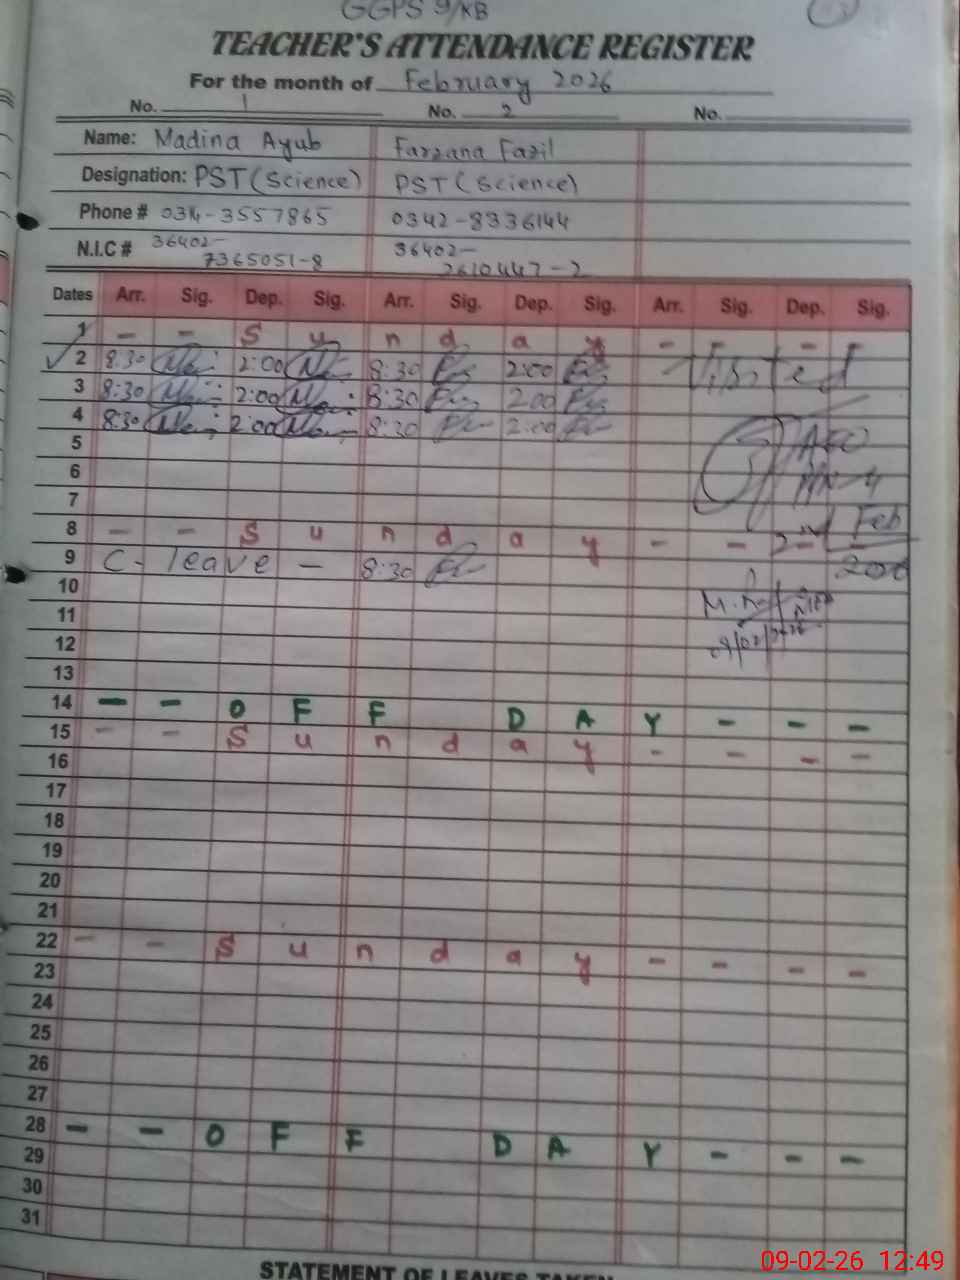 GGPS 9/KB
TEACHER'S ATTENDANCE REGISTER
For the month of February 2026
No. 1 No. 2 No.
Name: Madina Ayub Farzana Fazil
Designation: PST (Science) PST (Science)
Phone # 0314-3557865 0342-8336144
N.I.C # 36402- 36402-
7365051-8 2610447-2
Dates Arr. Sig. Dep. Sig. Arr. Sig. Dep. Sig. Arr. Sig. Dep. Sig.
1 - - S u n d a y - - -
2 8:30 2:00 8:30 2:00 Visited
3 8:30 2:00 8:30 2:00
4 8:30 2:00 8:30 2:00
5 AEO
6
7
8 - - S u n d a y - - 2nd Feb
9 C- leave - 8:30
10
11
12
13
14 - - O F F D A Y - - -
15 - - S u n d a y - - - -
16
17
18
19
20
21
22 - - S u n d a y - - - -
23
24
25
26
27
28 - - O F F D A Y - - -
29
30
31
STATEMENT OF LEAVES TAKEN
09-02-26 12:49